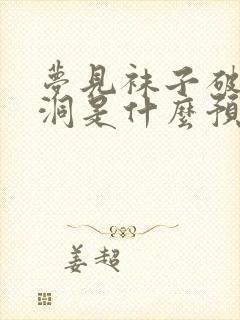 夢見襪子破
洞是什麼預
姜超